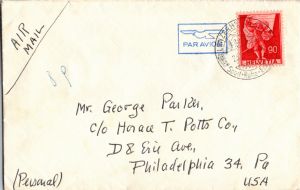 AIR
MAIL
PAR AVION
90
HELVETIA
Mr. George Parlar,
c/o Horace T. Potts Coy,
D & Erie Ave,
Philadelphia 34. Pa
(Personal)
USA